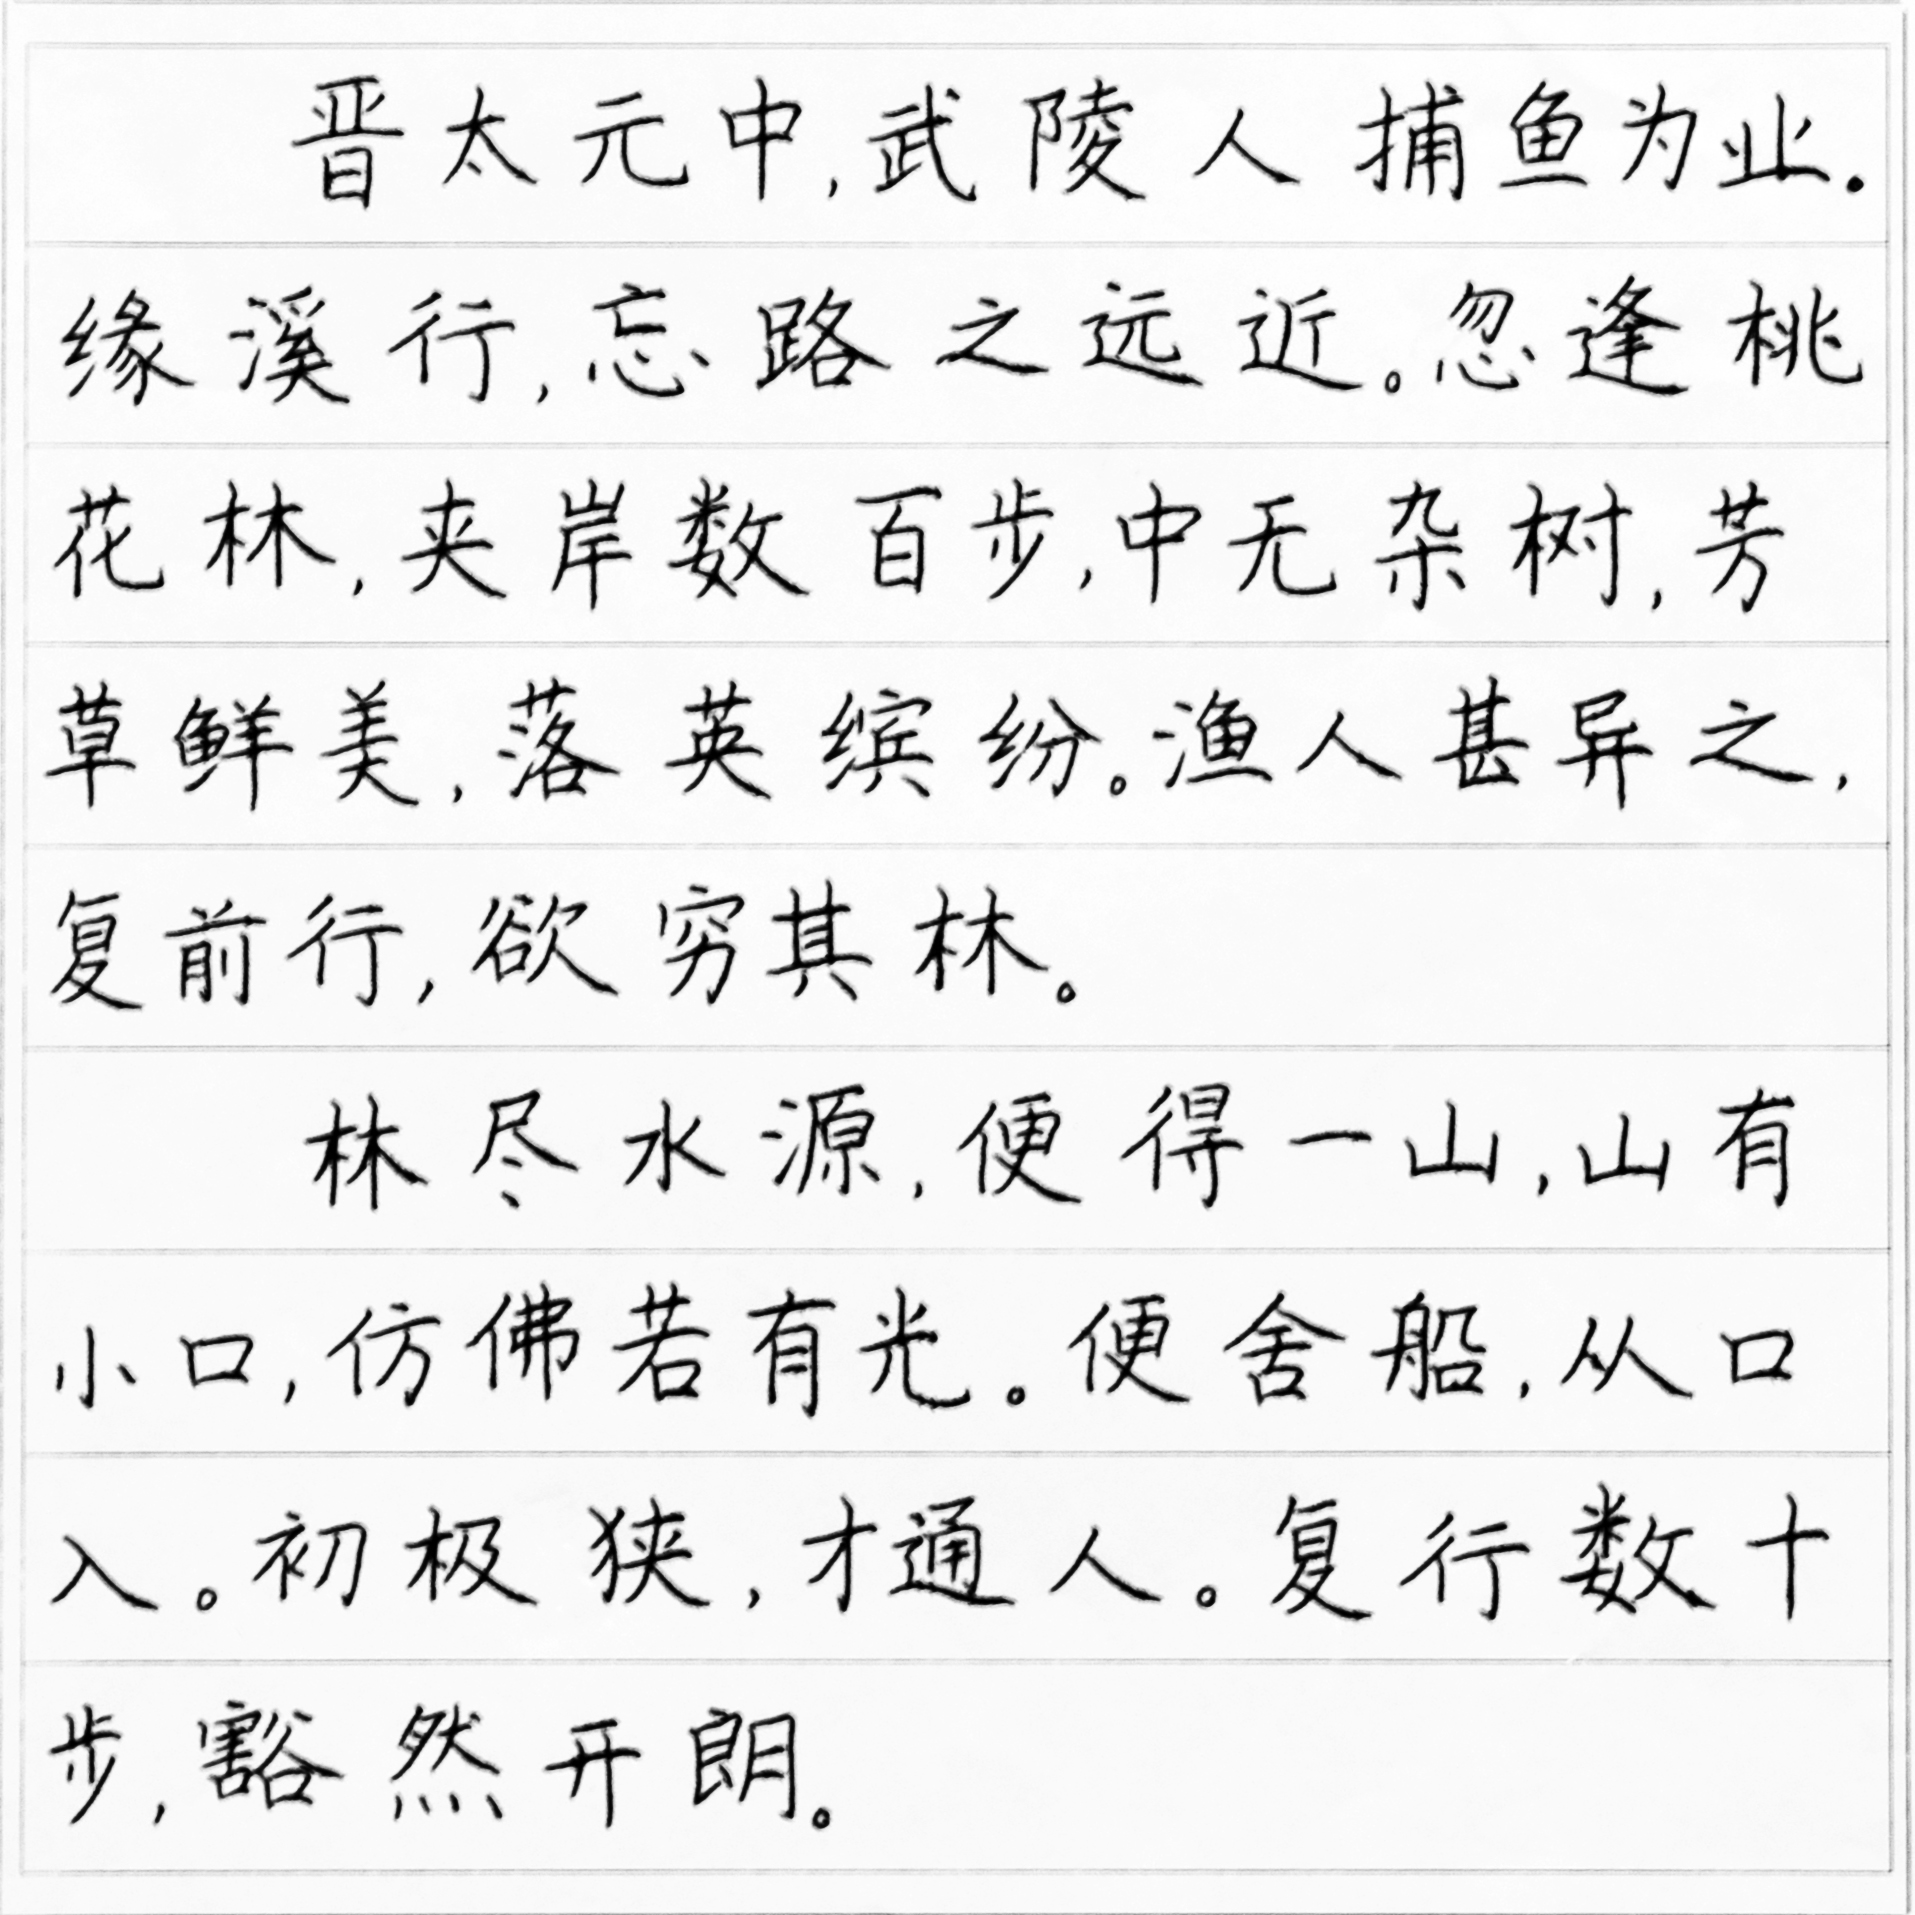 晋太元中,武陵人捕鱼为业.
缘溪行,忘路之远近。忽逢桃
花林,夹岸数百步,中无杂树,芳
草鲜美,落英缤纷。渔人甚异之,
复前行,欲穷其林。
林尽水源,便得一山,山有
小口,仿佛若有光。便舍船,从口
入。初极狭,才通人。复行数十
步,豁然开朗。